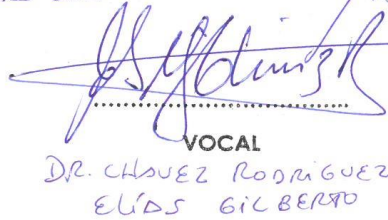 VOCAL
DR. CHAVEZ RODRIGUEZ
ELÍAS GILBERTO